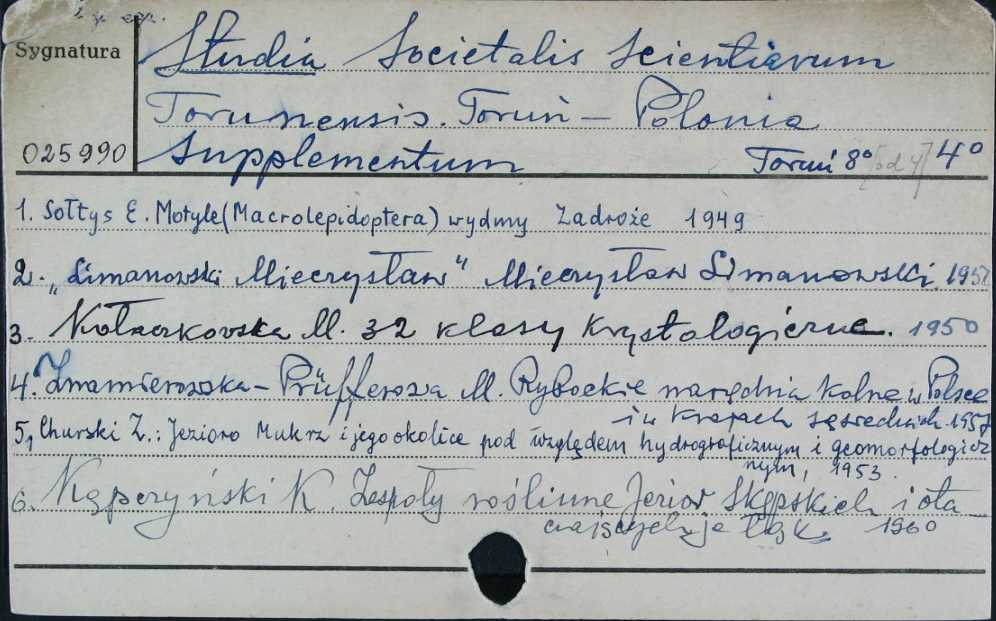 Sygnatura
Studia Societatis Scientiarum
Torunensis. Toruń – Polonia
025990 Supplementum Toruń 8° [od 4] 4°
1. Sołtys E. Motyle (Macrolepidoptera) wydmy Zadroże 1949
2. „Limanowski Mieczysław" Mieczysław Limanowski. 195
3. Kołaczkowska M. 32 klasy krystalograficzne. 1950
4. Znamierowska-Prüfferowa M. Rybackie narzędzia kolne w Polsce
i w krajach sąsiednich 1957
5, Churski Z.: Jezioro Mukrz i jego okolice pod względem hydrograficznym i geomorfologicz
nym, 1953.
6. Kępczyński K. Zespoły roślinne Jezior Skępskich i ota
czających je łąk 1960